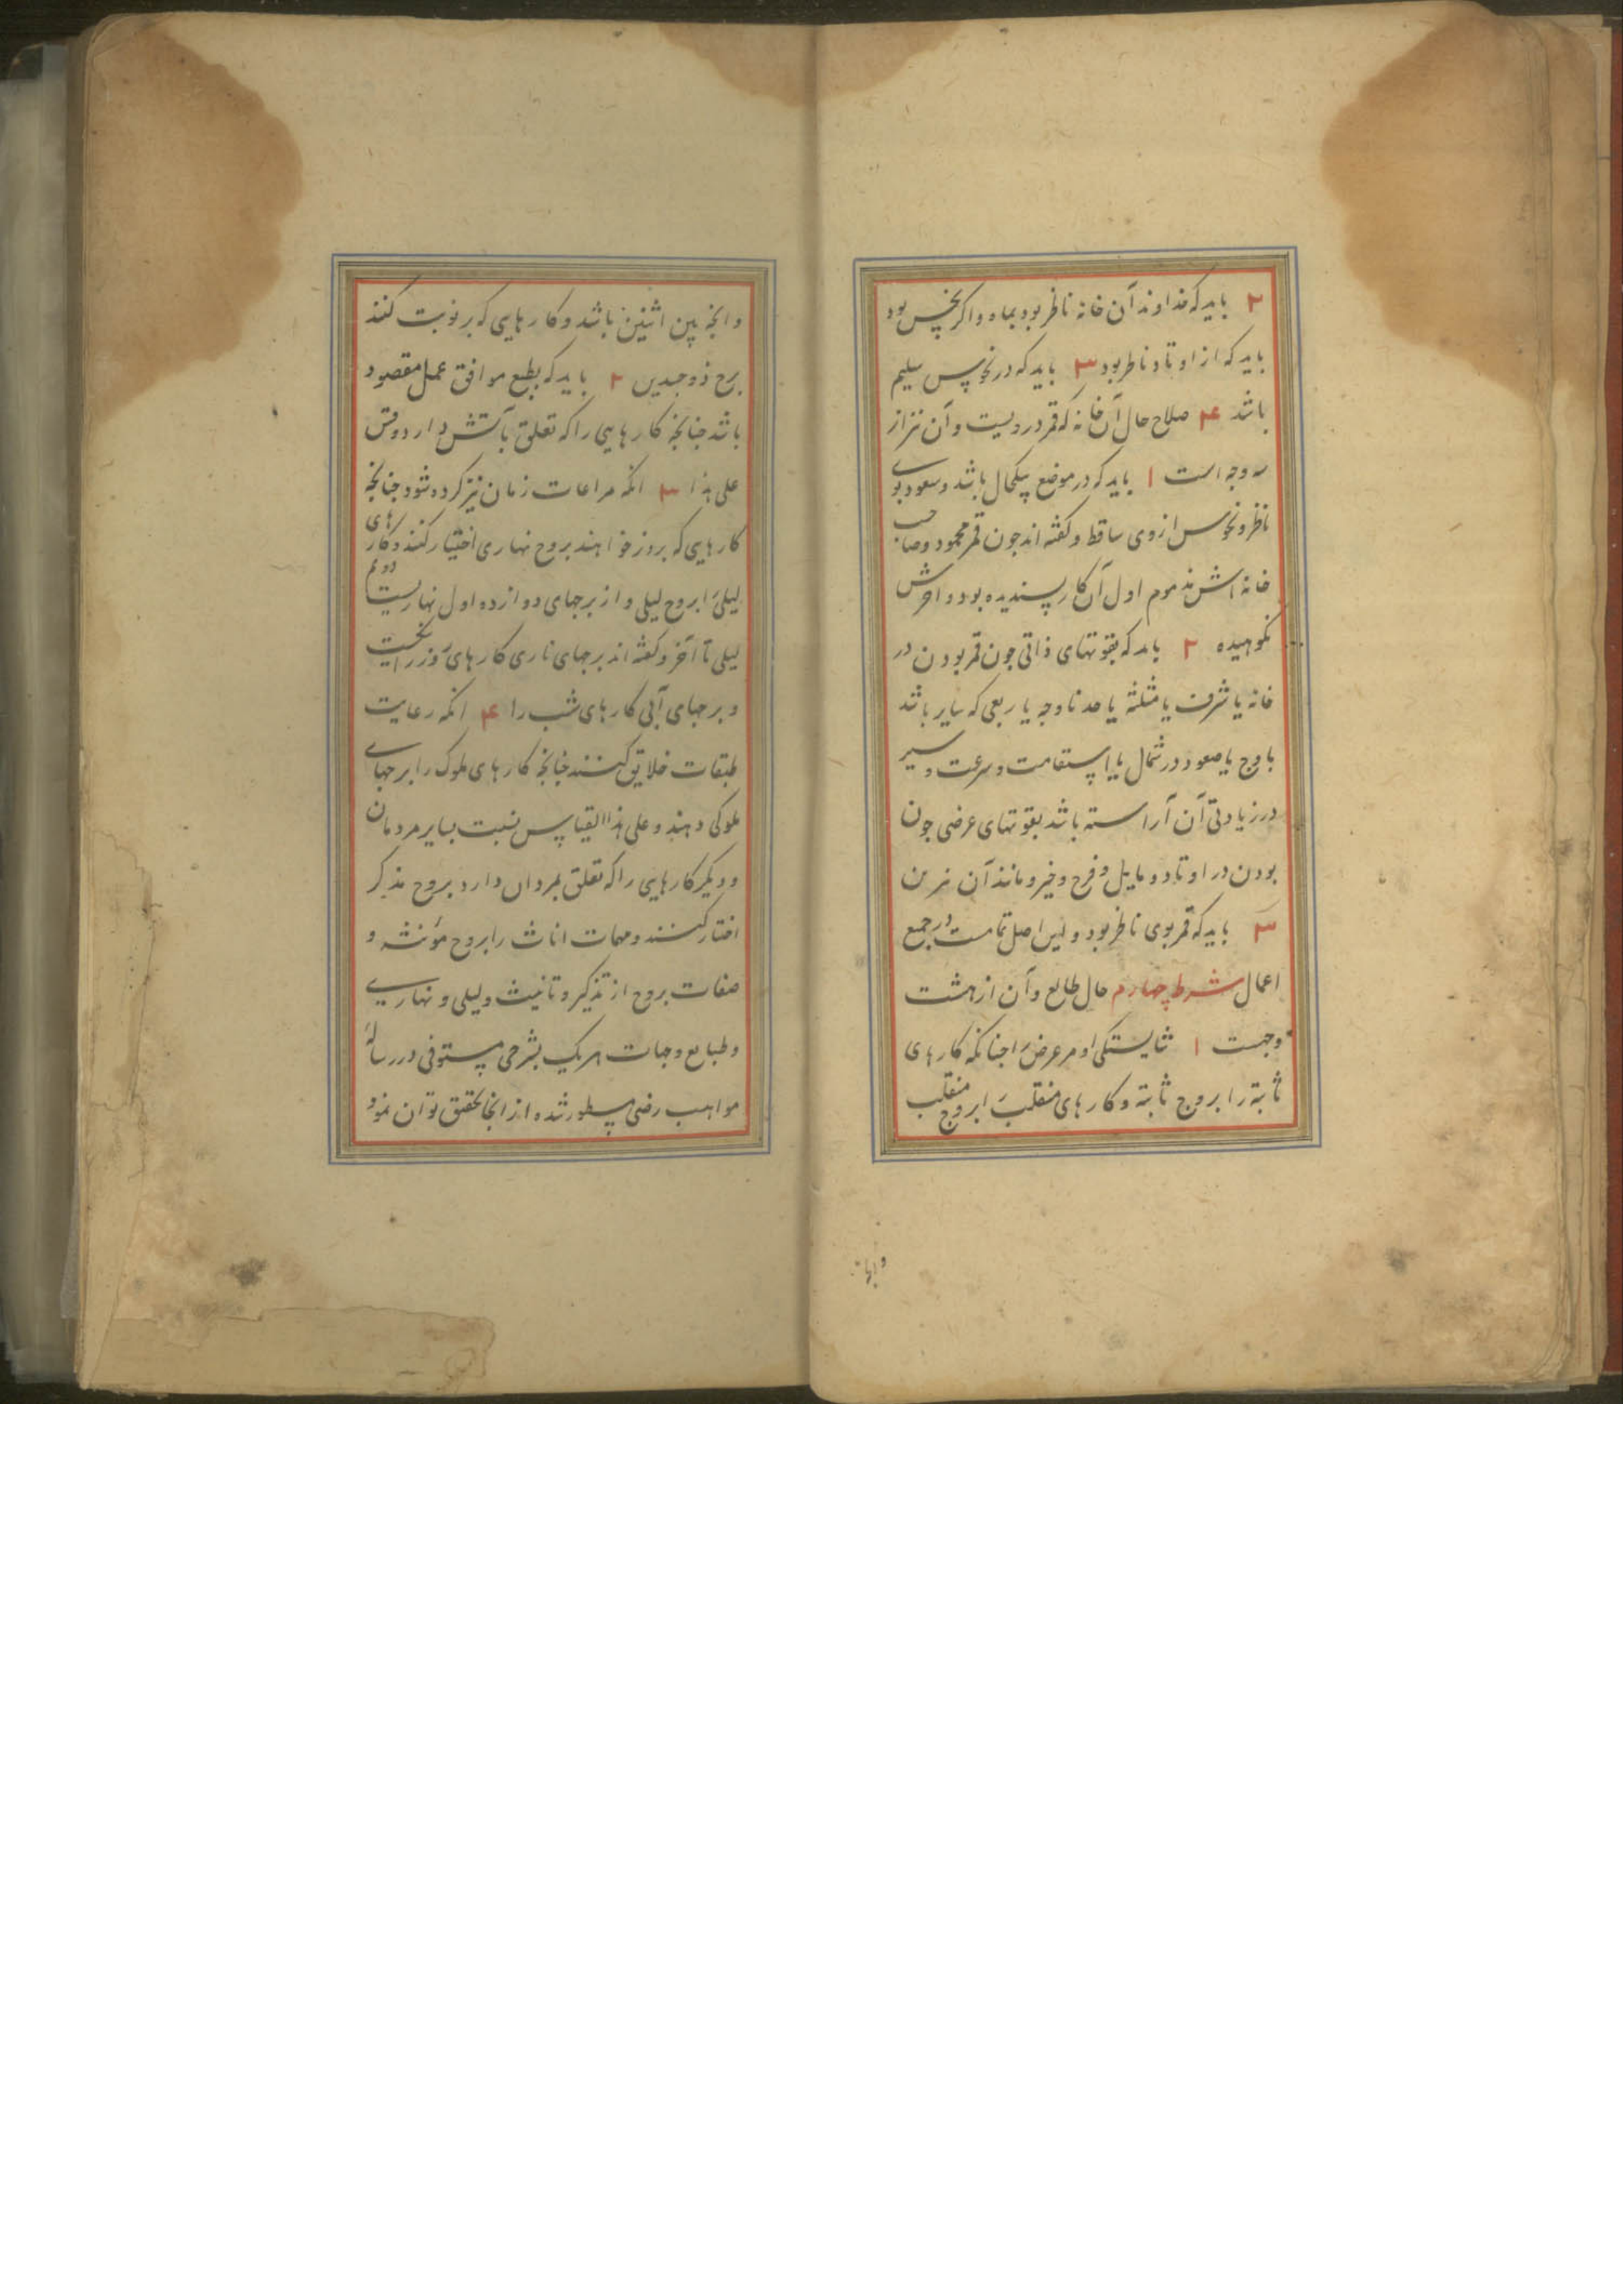 ۲ باید که خداوند آن خانه ناظر بود بماه و اکر نحس بود
باید که از اوتاد ناظر بود ۳ باید که در نحوس سلیم
باشد ۴ صلاح حال آن خانه که قمر درویست و آن نیز از
سه وجه است ۱ باید که در موضع نیکحال باشد و سعود بوی
ناظر و نحوس از وی ساقط و کفته اند جون قمر محمود و صاحب
خانه اش مذموم اول آن کار پسندیده بود و آخرش
نکوهیده ۲ باید که بقوتهای ذاتی جون قمر بودن در
خانه یا شرف یا مثلثه یا حد یا وجه یا ربعی که سایر باشد
باوج یا صعود در شمال یا استقامت و سرعت و سیر
در زیادتی آن آراسته باشد بقوتهای عرضی جون
بودن در اوتاد و مایل و فرح و خیر و مانند آن
۳ باید که قمر بوی ناظر بود و این اصل تمامست در جمیع
اعمال شرط چهارم حال طالع و آن از هشت
وجهست ۱ شایستکی او مر عرض را جنانکه کارهای
ثابته را بروج ثابته و کارهای منقلب را بروج منقلب
وانها
و انجه بین اثنین باشد و کارهایی که بر نوبت کنند
برج ذو جسدین ۲ باید که بطبع موافق عمل مقصود
باشد جنانجه کارهایی را که تعلق بآتش دارد وقس
علی هذا ۳ انکه مراعات زمان نیز کرده شود جنانجه
کارهایی که بروز خواهند بروج نهاری اختیار کنند و کارهای
لیلی را بروج لیلی و از برجهای دوازده اول نهاریست دوم
لیلی تا آخر و کفته اند برجهای ناری کارهای روز را نخست
و برجهای آبی کارهای شب را ۴ انکه رعایت
طبقات خلایق کنند جنانجه کارهای ملوک را برجهای
ملوکی دهند و علی هذا القیاس نسبت بسایر مردمان
و دیکر کارهایی را که تعلق بمردان دارد بروج مذکر
اختیار کنند و مهمات اناث را بروج مؤنثه و
صفات بروج از تذکیر و تانیث و لیلی و نهاری
و طبایع و جهات هر یک بشرحی مستوفی در رسالهٔ
مواهب رضی مسطور شده از انجا تحقیق توان نمود